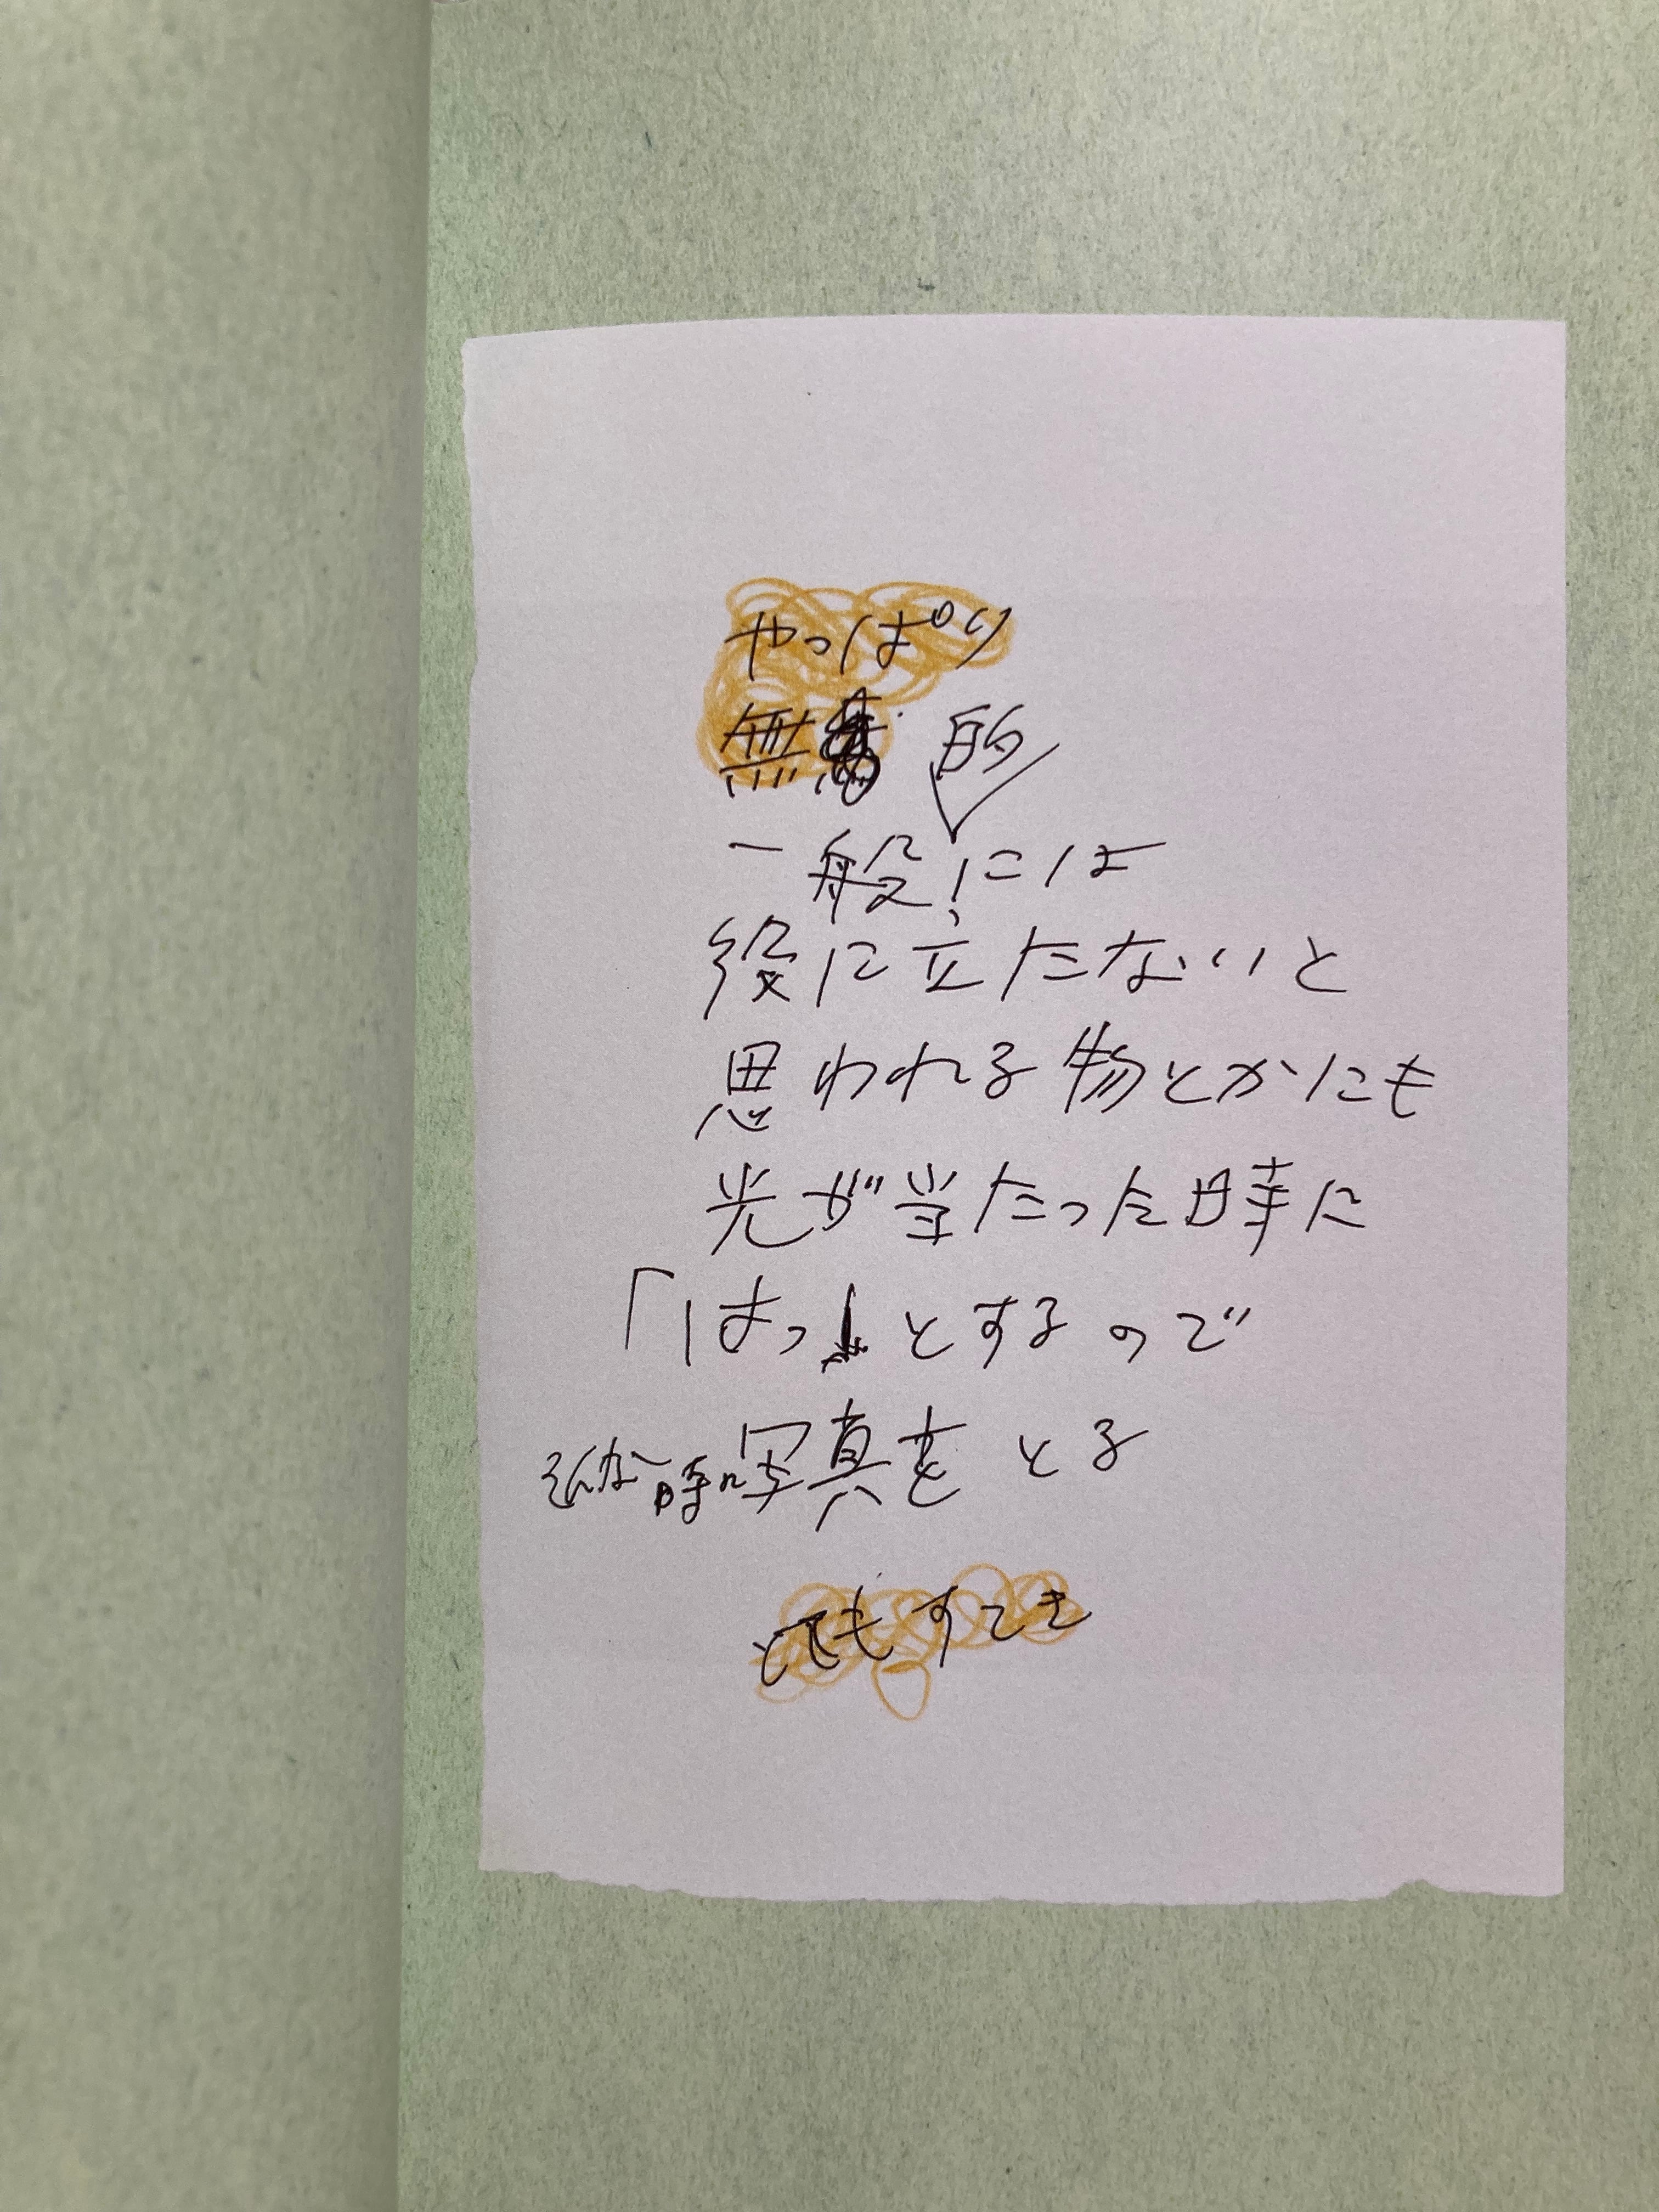 やっぱり
無
一般的には
役に立たないと
思われる物とかにも
光が当たった時に
「はっ」とするので
そんな時に写真をとる
とてもすてき